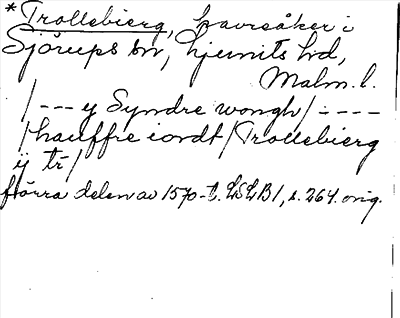 *Trollebierg, havreåker i
Sjörups sn, Ljunits hd,
Malm. l.
/--- y Syndre wongh/:----
/hauffre iordt/Trollebierg
ij tr/
förra delen av 1570-t. LSLB1, s. 264. orig.